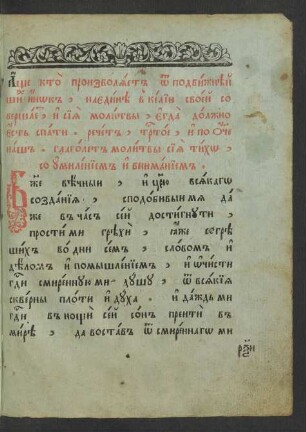 Аще кто̀ произволѧ́етъ ѿ подвижнѣй
шиⷯ и҆́нокъ, наедѝнѣ в̾ кѣ́лїи свое́й со
верша́е, и҆ сїѧ̀ моли́твы, є҆гда̀ до́лжно
є҆́сть спа́ти. Рече́тъ, трⷭ҇то́е, и҆ по Ѻ҆́че
на́шъ. Глаго́летъ моли́твы сїѧ̀ ти́хо,
со ᲂу҆миле́нїемъ и҆ внима́нїемъ.
Бж҃е вѣ́чныи, и҆ цр҃ю̀ всѧ́кагѡ
созда́нїѧ, сподо́бивыи мѧ да́
же в̾ ча́съ се́й дости́гнути,
прости́ ми грѣхѝ, ꙗ҆̀же согрѣ
ши́хъ во дни́ се́мъ, сло́вомъ и҆
дѣ́ломъ и҆ помышле́нїемъ, и҆ ѡ҆чи́сти
гдⷭ҇и смире́нную ми дꙋ́шꙋ, ѿ всѧ́кїѧ
скве́рны пло́ти и҆ дꙋ́ха. И҆ да́ждь ми
гдⷭ҇и в̾ но́щи се́й со́нъ преитѝ в̾
ми́рѣ, да воста́въ ѿ смире́ннагѡ ми